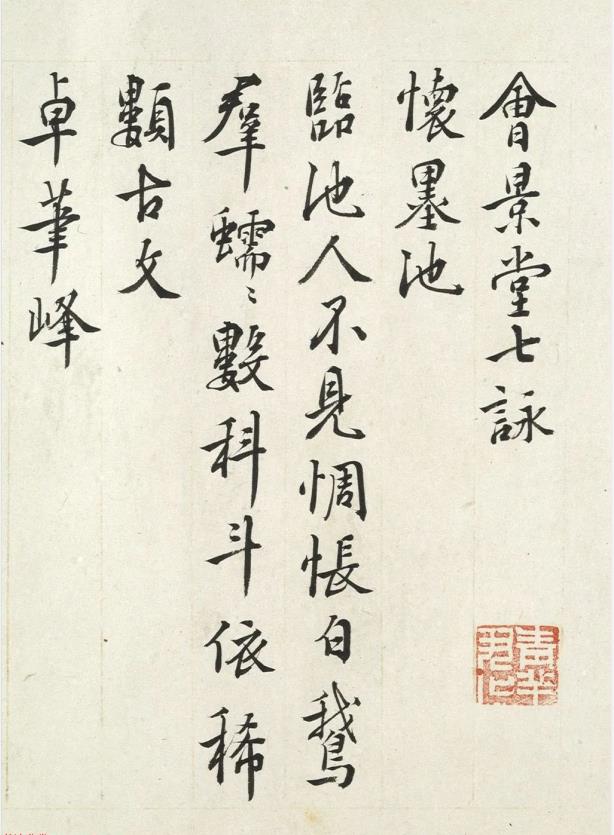 會景堂七詠
懷墨池
臨池人不見惆悵白鵝
羣蠕〻數科斗依稀
顭古文
卓筆峰